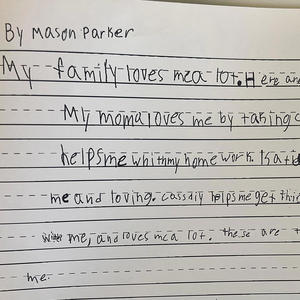 By Mason Parker
My family loves mea lot. Here are
My moma loves me by taking c
helps me whithmy home work. Kati
me and loving. Cassdiy helps me get thi
me, and loves mea lot. these are t
me.